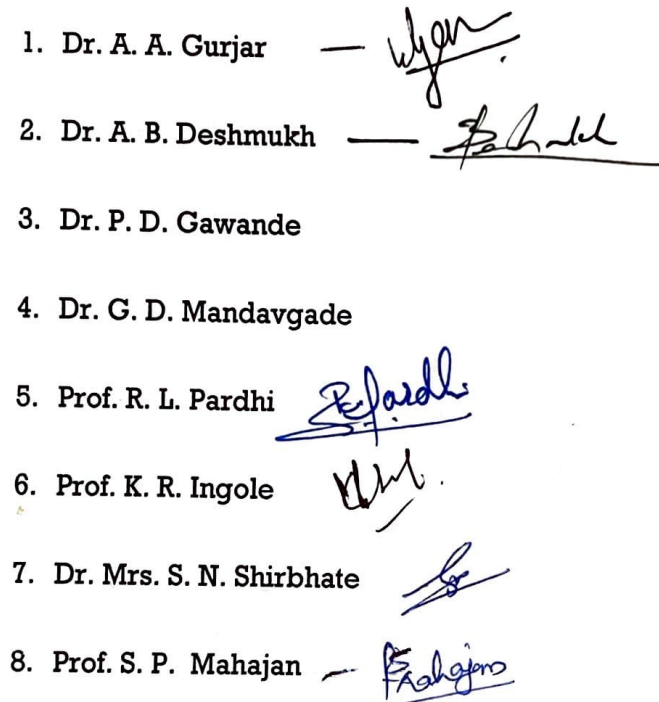 1. Dr. A. A. Gurjar —
2. Dr. A. B. Deshmukh —
3. Dr. P. D. Gawande
4. Dr. G. D. Mandavgade
5. Prof. R. L. Pardhi
6. Prof. K. R. Ingole
7. Dr. Mrs. S. N. Shirbhate
8. Prof. S. P. Mahajan —